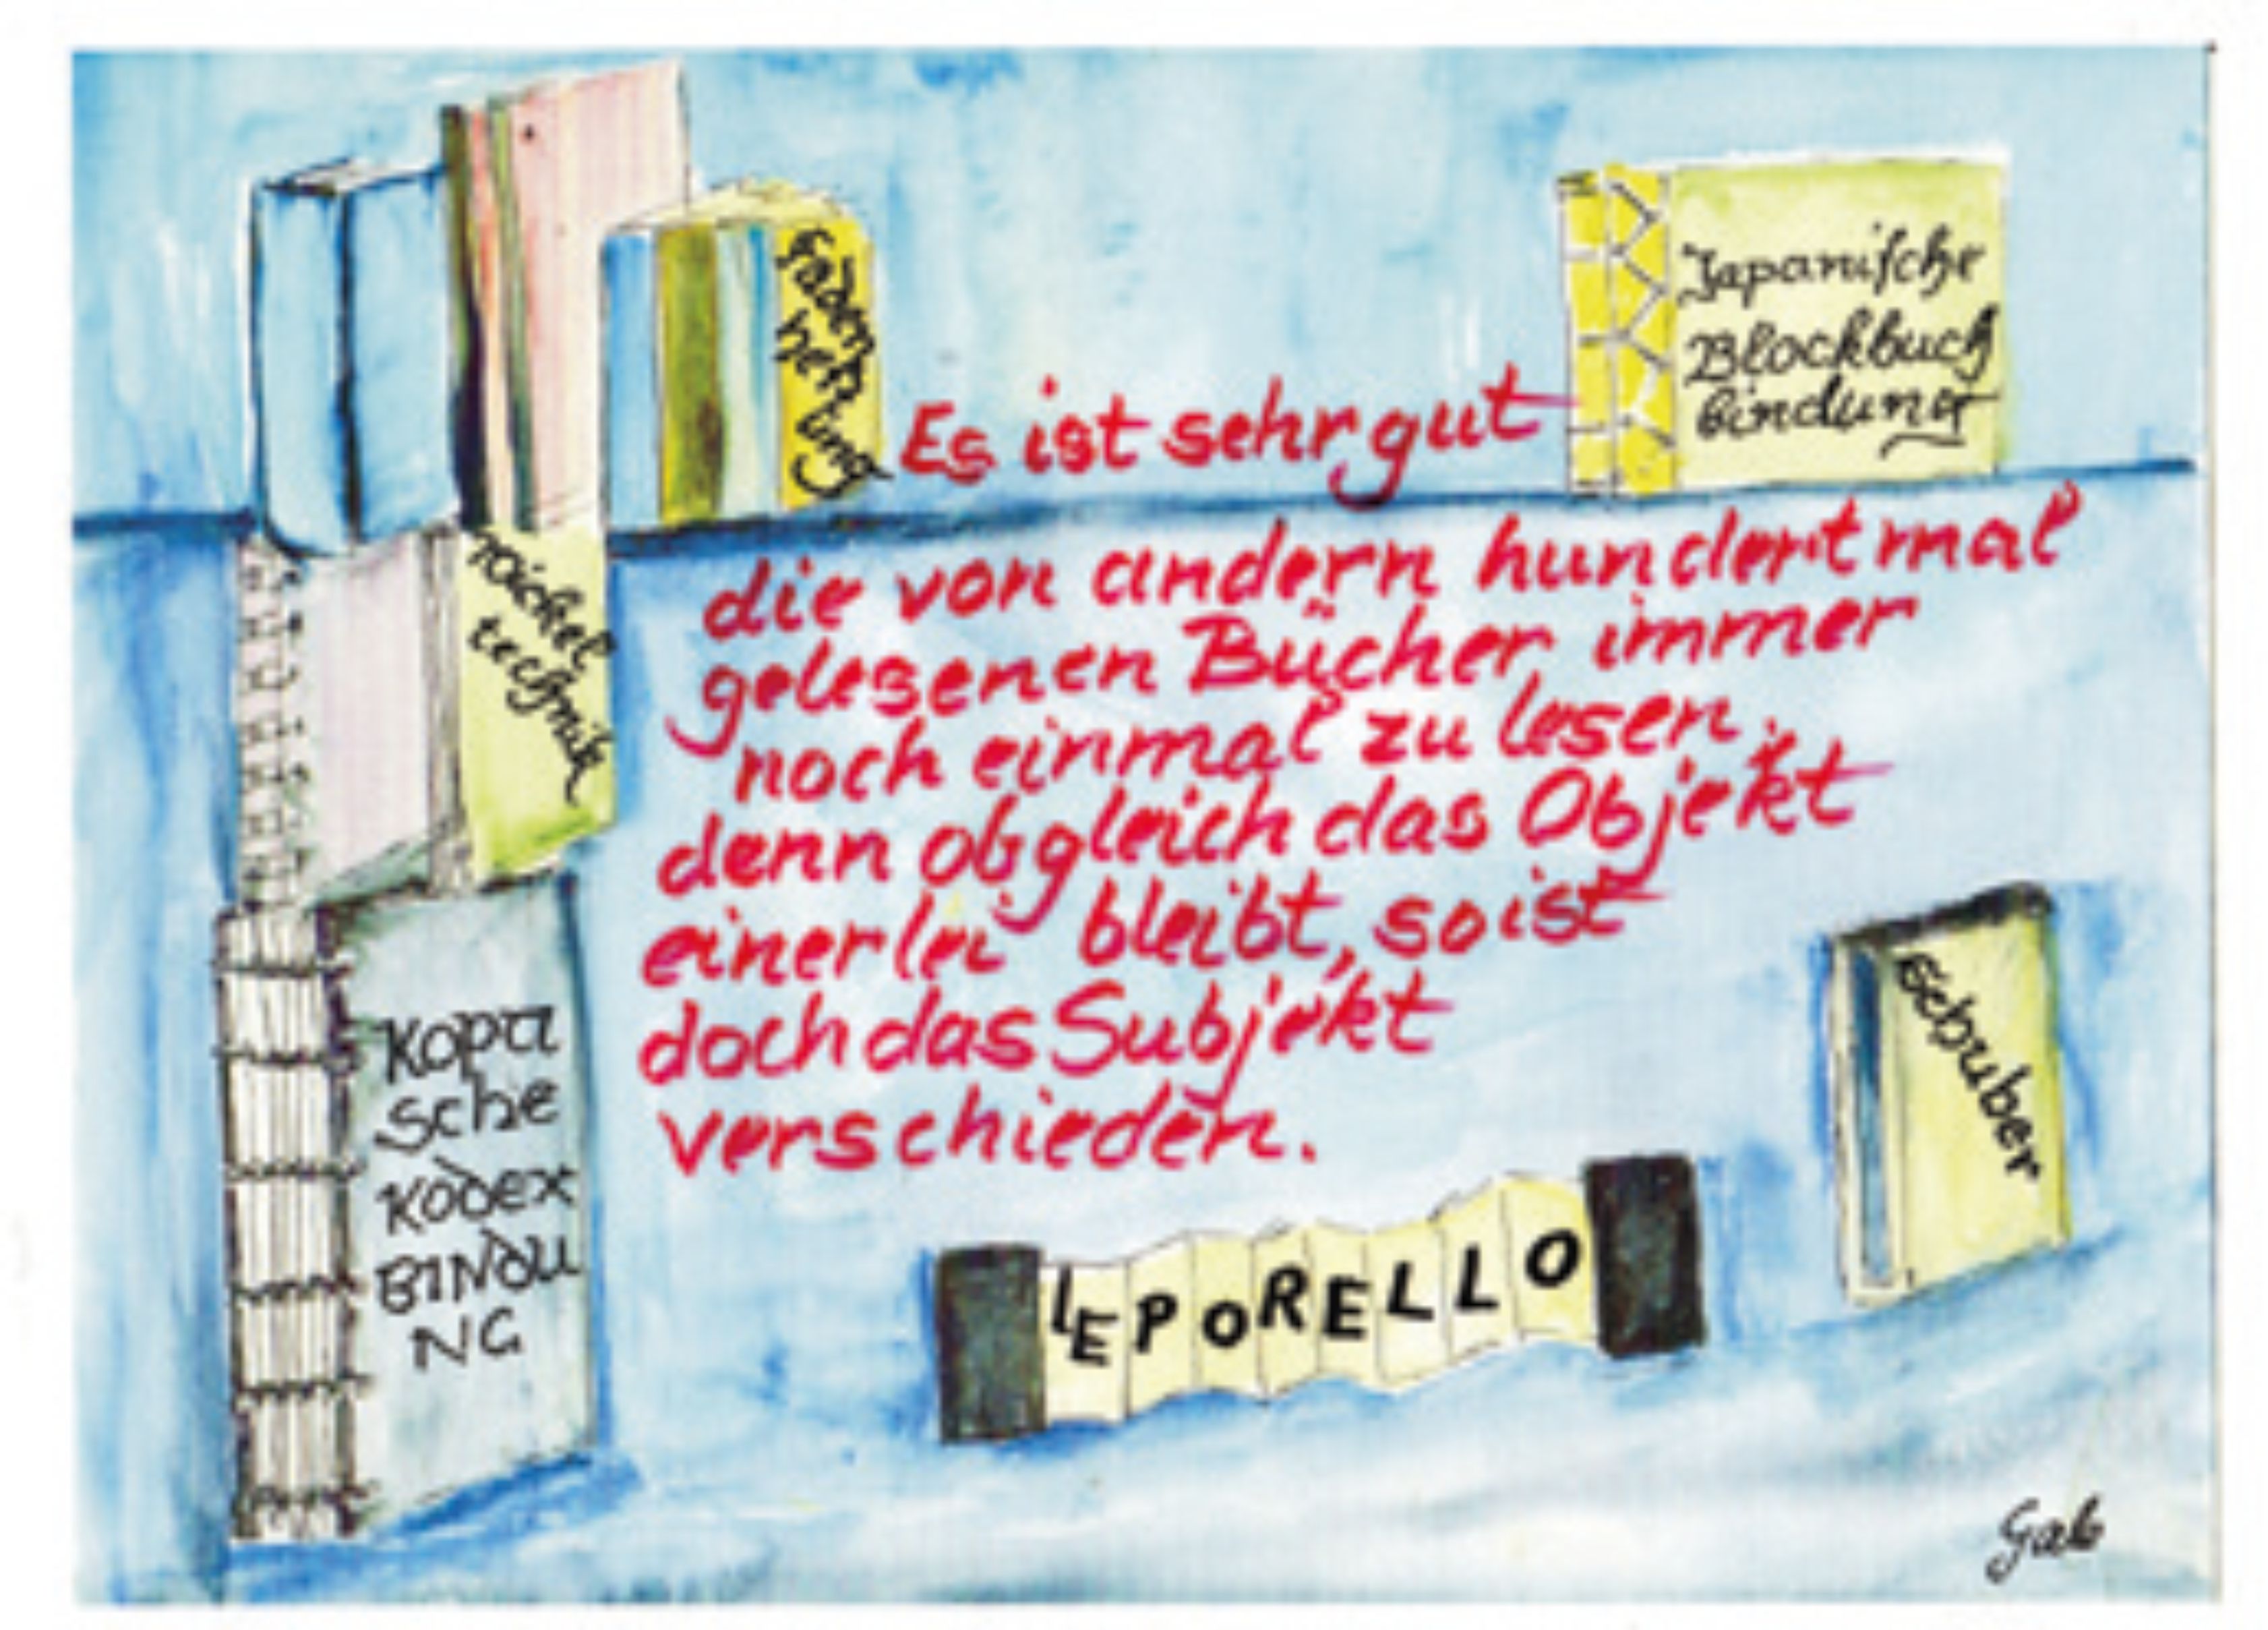 Faden
heftung
Japanische
Blockbuch
bindung
Es ist sehr gut
die von andern hundertmal
gelesenen Bücher immer
noch einmal zu lesen.
denn obgleich das Objekt
einerlei bleibt, so ist
doch das Subjekt
verschieden.
Wickel
technik
Kopti
sche
Kodex
BINDU
NG
Schuber
LEPORELLO
Gab